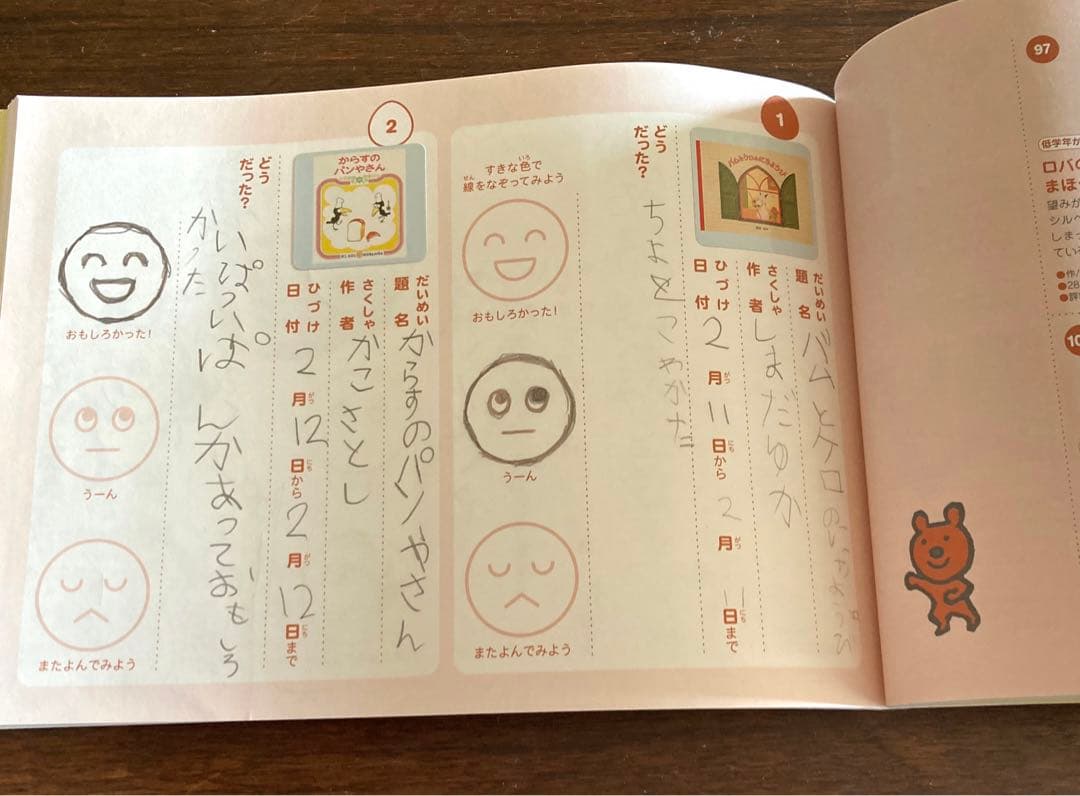 1
バムとケロのにちようび
だいめい
題名
バムとケロのにちようび
さくしゃ
作者
しまだゆか
ひづけ
日付
2月11日から2月11日まで
どうだった?
ちょとこゃかた
すきな色で
線をなぞってみよう
おもしろかった!
うーん
またよんでみよう
2
からすの
パンやさん
だいめい
題名
からすのパンやさん
さくしゃ
作者
かこさとし
ひづけ
日付
2月12日から2月12日まで
どうだった?
いぱついぱんかあっておもしろ
かつた
おもしろかった!
うーん
またよんでみよう
97
低学年か
ロバの
まほ
望みが
シルベ
しまっ
てい
●作/
●28
●評
10